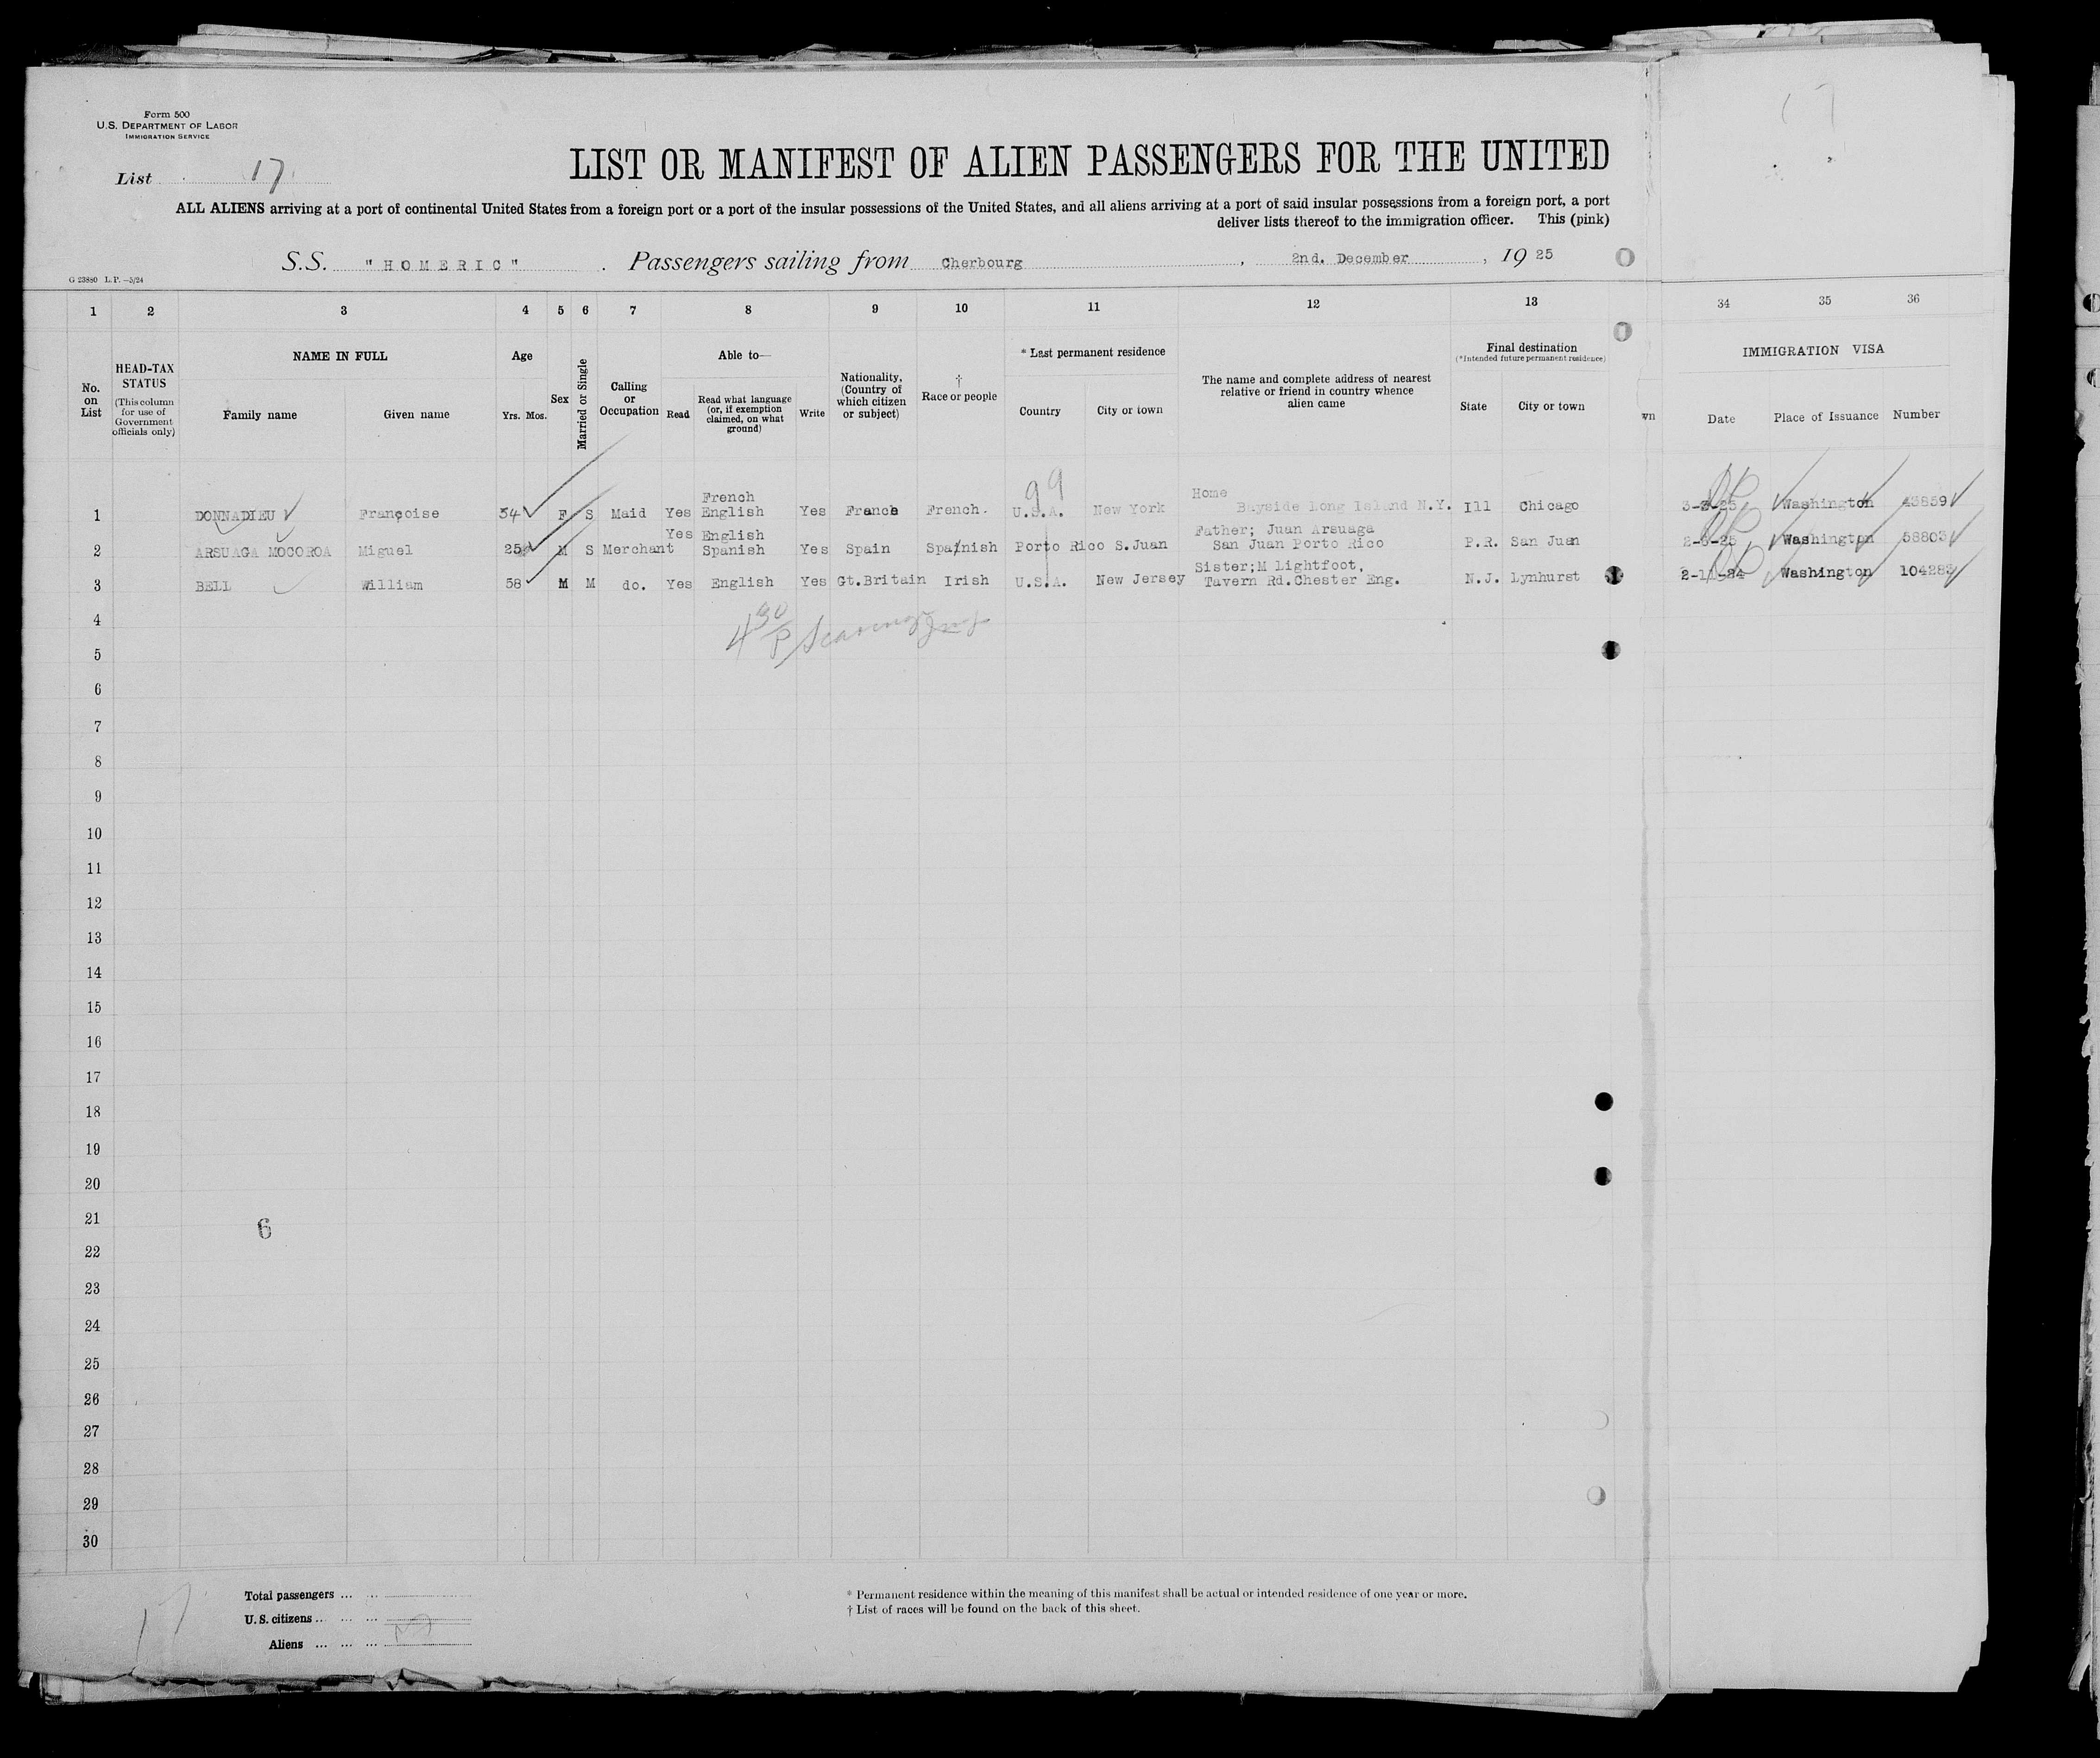 Form 500
U.S. DEPARTMENT OF LABOR
IMMIGRATION SERVICE
List 17
17
LIST OR MANIFEST OF ALIEN PASSENGERS FOR THE UNITED
ALL ALIENS arriving at a port of continental United States from a foreign port or a port of the insular possessions of the United States, and all aliens arriving at a port of said insular possessions from a foreign port, a port
deliver lists thereof to the immigration officer. This (pink)
S.S. "HOMERIC" . Passengers sailing from Cherbourg , 2nd. December , 19 25
G 23880 L.P.—5/24
1 2 3 4 5 6 7 8 9 10 11 12 13 34 35 36
No. on List
HEAD-TAX STATUS (This column for use of Government officials only)
NAME IN FULL
Family name Given name
Age
Yrs. Mos.
Sex
Married or Single
Calling or Occupation
Able to—
Read
Read what language (or, if exemption claimed, on what ground)
Write
Nationality, (Country of which citizen or subject)
† Race or people
* Last permanent residence
Country City or town
The name and complete address of nearest relative or friend in country whence alien came
Final destination
(*Intended future permanent residence)
State City or town
wn
IMMIGRATION VISA
Date Place of Issuance Number
99
French Home
1 DONNADIEU Françoise 34 F S Maid Yes English Yes France French. U.S.A. New York Bayside Long Island N.Y. Ill Chicago Washington 43859
Yes English Father; Juan Arsuaga
2 ARSUAGA MOCOROA Miguel 25 M S Merchant Spanish Yes Spain Spanish Porto Rico S.Juan San Juan Porto Rico P.R. San Juan Washington 58803
Sister;M Lightfoot,
3 BELL William 58 M M do. Yes English Yes Gt.Britain Irish U.S.A. New Jersey Tavern Rd.Chester Eng. N.J. Lynhurst Washington
4
4 30 P
5
6
7
8
9
10
11
12
13
14
15
16
17
18
19
20
21
6
22
23
24
25
26
27
28
29
30
Total passengers ... ...
U.S. citizens ... ... ...
Aliens ... ... ...
17
* Permanent residence within the meaning of this manifest shall be actual or intended residence of one year or more.
† List of races will be found on the back of this sheet.